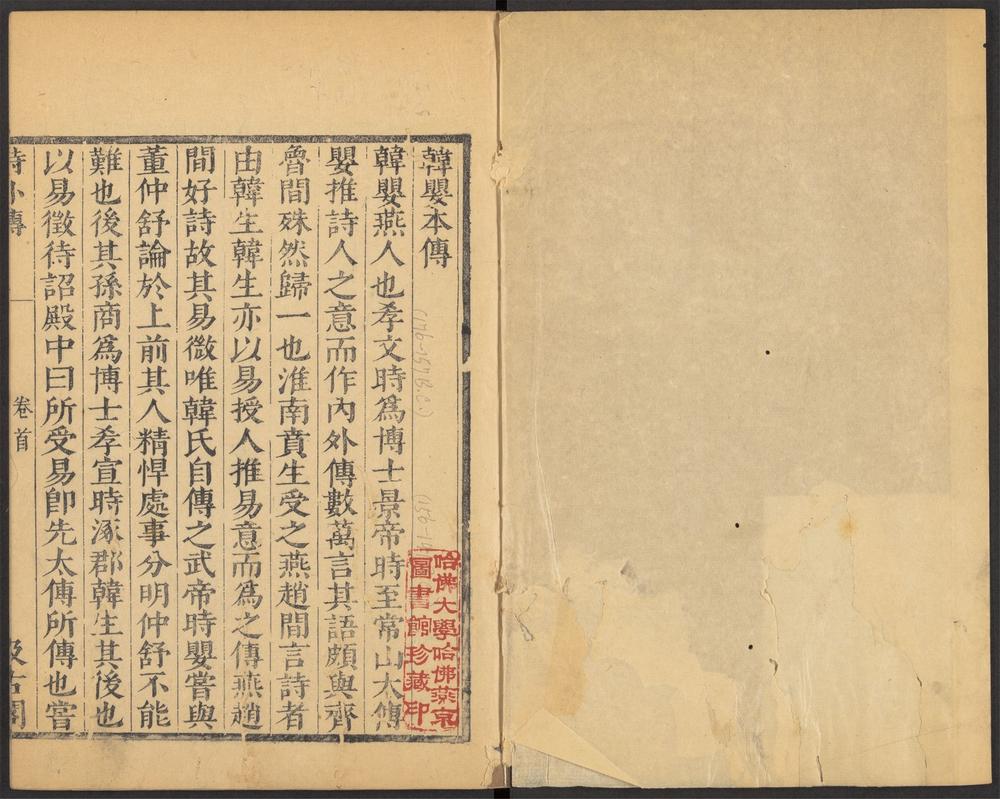 韓嬰本傳
韓嬰燕人也孝文時爲博士景帝時至常山太傅
嬰推詩人之意而作內外傳數萬言其語頗與齊
魯間殊然歸一也淮南賁生受之燕趙間言詩者
由韓生韓生亦以易授人推易意而爲之傳燕趙
間好詩故其易微唯韓氏自傳之武帝時嬰嘗與
董仲舒論於上前其人精悍處事分明仲舒不能
難也後其孫商爲博士孝宣時涿郡韓生其後也
以易徵待詔殿中曰所受易卽先太傅所傳也嘗
詩外傳
卷首
汲古閣
哈佛大學哈佛燕京
圖書館珍藏印
(176-157 B.C.)